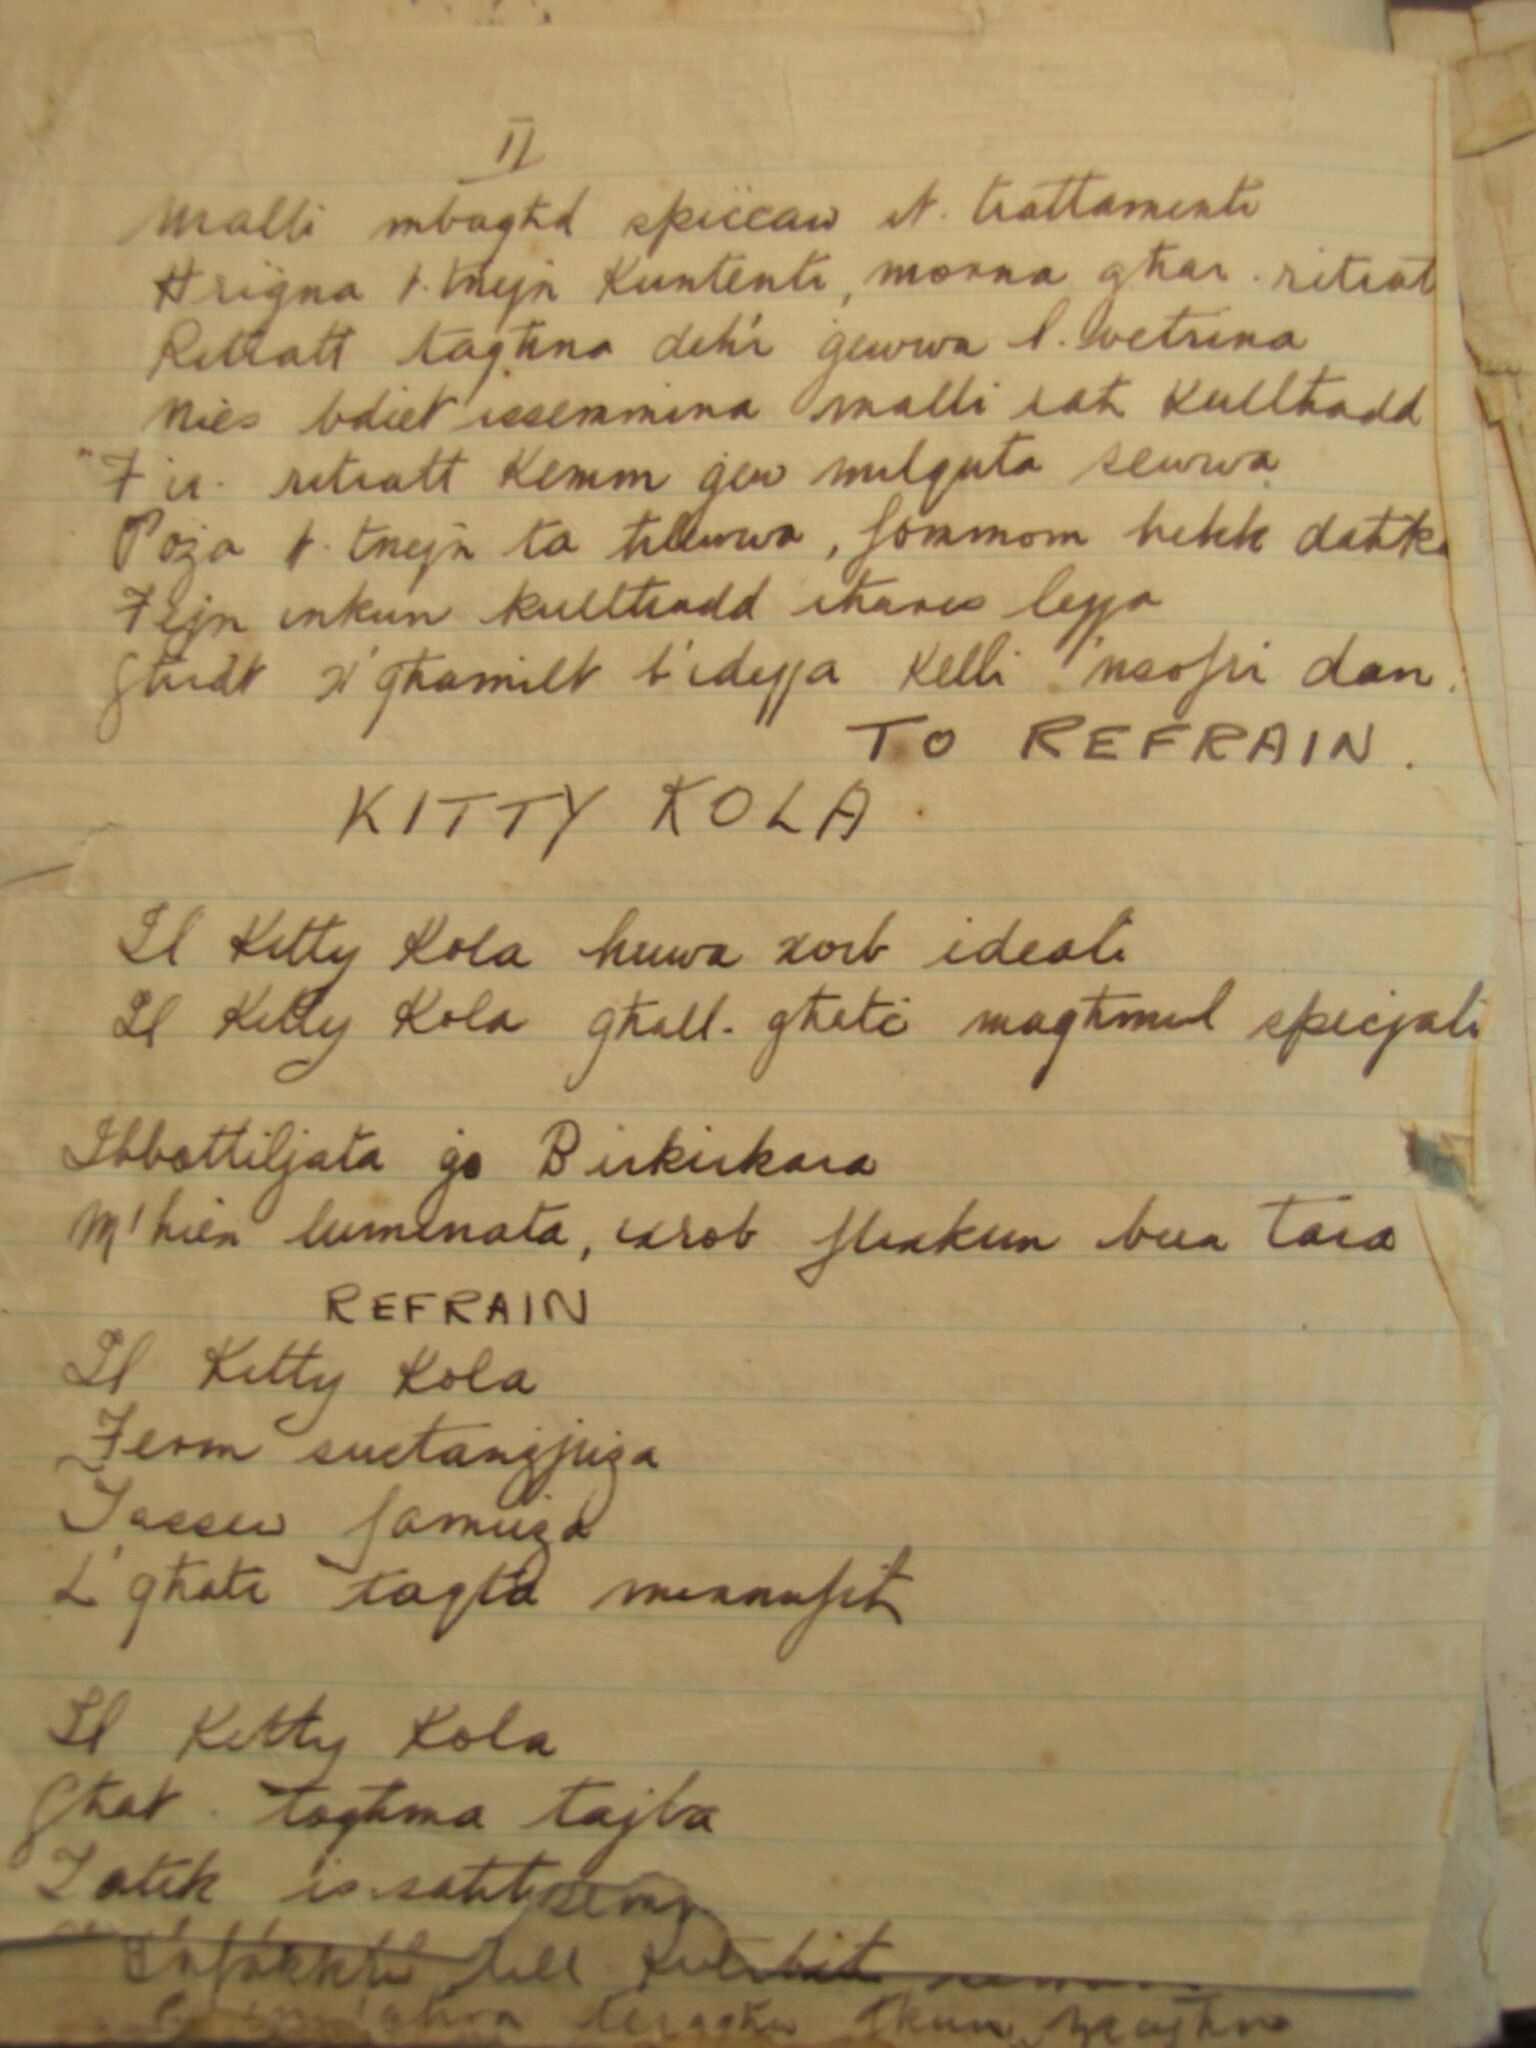 II
Malli mbagħd spiċċaw it. trattamenti
Ħriġna t. tnejn kuntenti, morna għar. ritrat
Ritratt tagħna dehi ġewwa l. vetrina
Nies bdiet issemmina malli rat kulħadd
"F'ir. ritratt kemm ġew milquta sewwa
Poża t. tnejn ta ħlewwa, fommom hekk daħka
Fejn inkun kulħadd iħares lejja
Għidt x'għamilt b'idejja kelli nsofri dan.
TO REFRAIN.
KITTY KOLA
Il Kitty Kola huwa xorb ideali
Il Kitty Kola għall. għatx magħmul speċjali
Ibbottiljata ġo Birkirkara
M'hix luminata, ixrob flixkun bix tara
REFRAIN
Il Kitty Kola
Ferm sustanzjuża
Tassew famuża
L għatx taqta minnufih
Il Kitty Kola
Għat. togħma tajba
Tatik is. saħħa